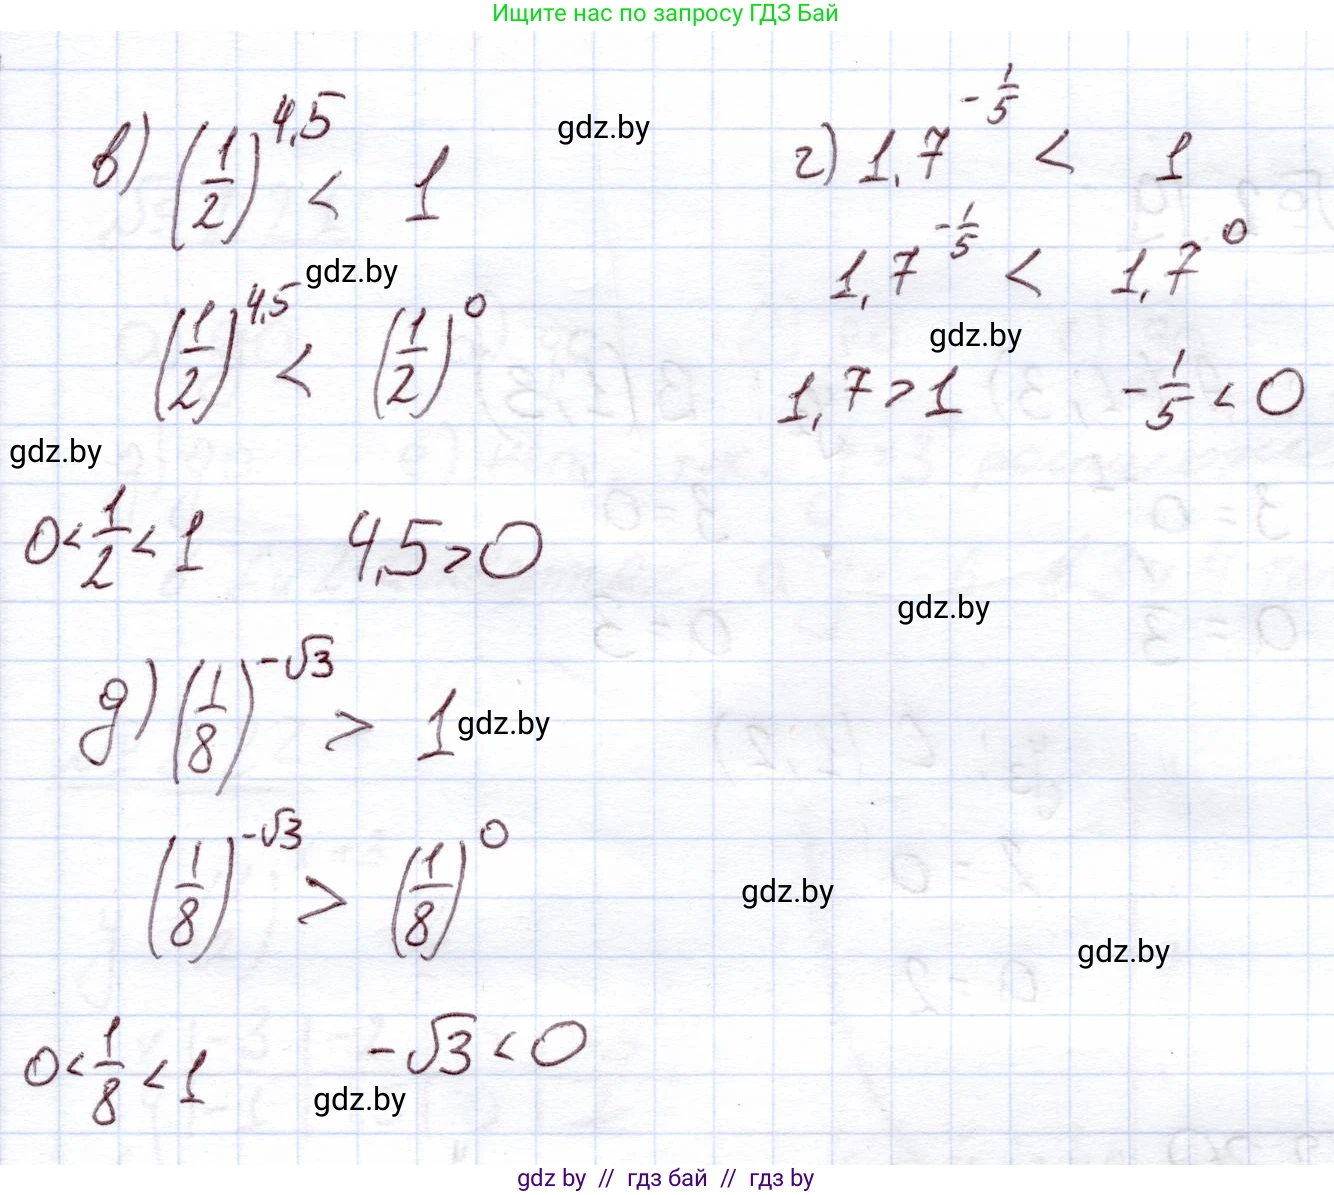 Ищите нас по запросу ГДЗ Бай
в) (1/2)^4,5 < 1
gdz.by
г) 1,7^-1/5 < 1
gdz.by
(1/2)^4,5 < (1/2)^0
1,7^-1/5 < 1,7^0
gdz.by
1,7 > 1 -1/5 < 0
gdz.by
0 < 1/2 < 1 4,5 > 0
gdz.by
д) (1/8)^-√3 > 1
gdz.by
(1/8)^-√3 > (1/8)^0
gdz.by
gdz.by
0 < 1/8 < 1 -√3 < 0
gdz.by
gdz by // гдз бай // gdz by